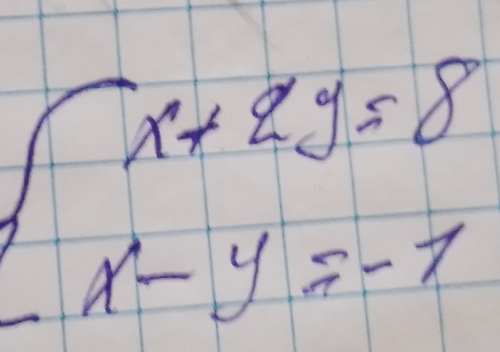 x + 2y = 8
x - y = -1